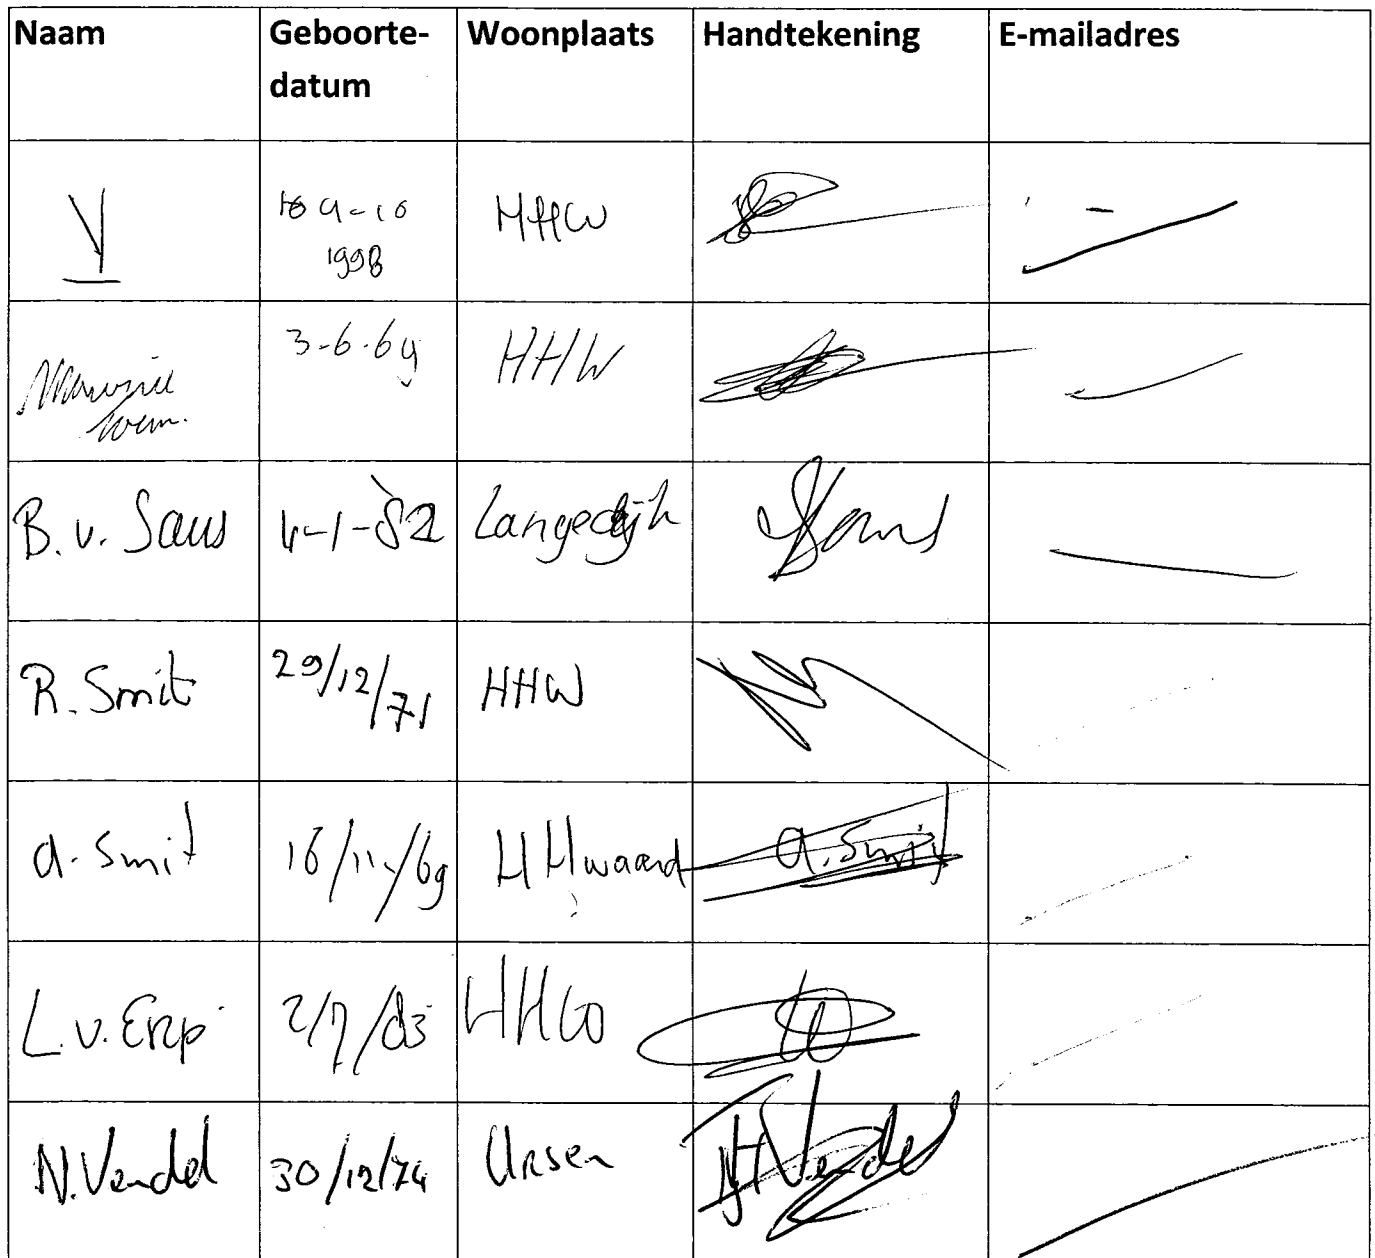 Naam Geboorte- Woonplaats Handtekening E-mailadres
datum
HHW
1998
3-6-69 HHW
B. v. Saus 4-1-82 Langedijk
R. Smit 29/12/71 HHW
a. Smit 16/11/69 HHwaard a. Smit
L. v. Erp 2/7/83 HHW
N. Vendel 30/12/74 Ursem